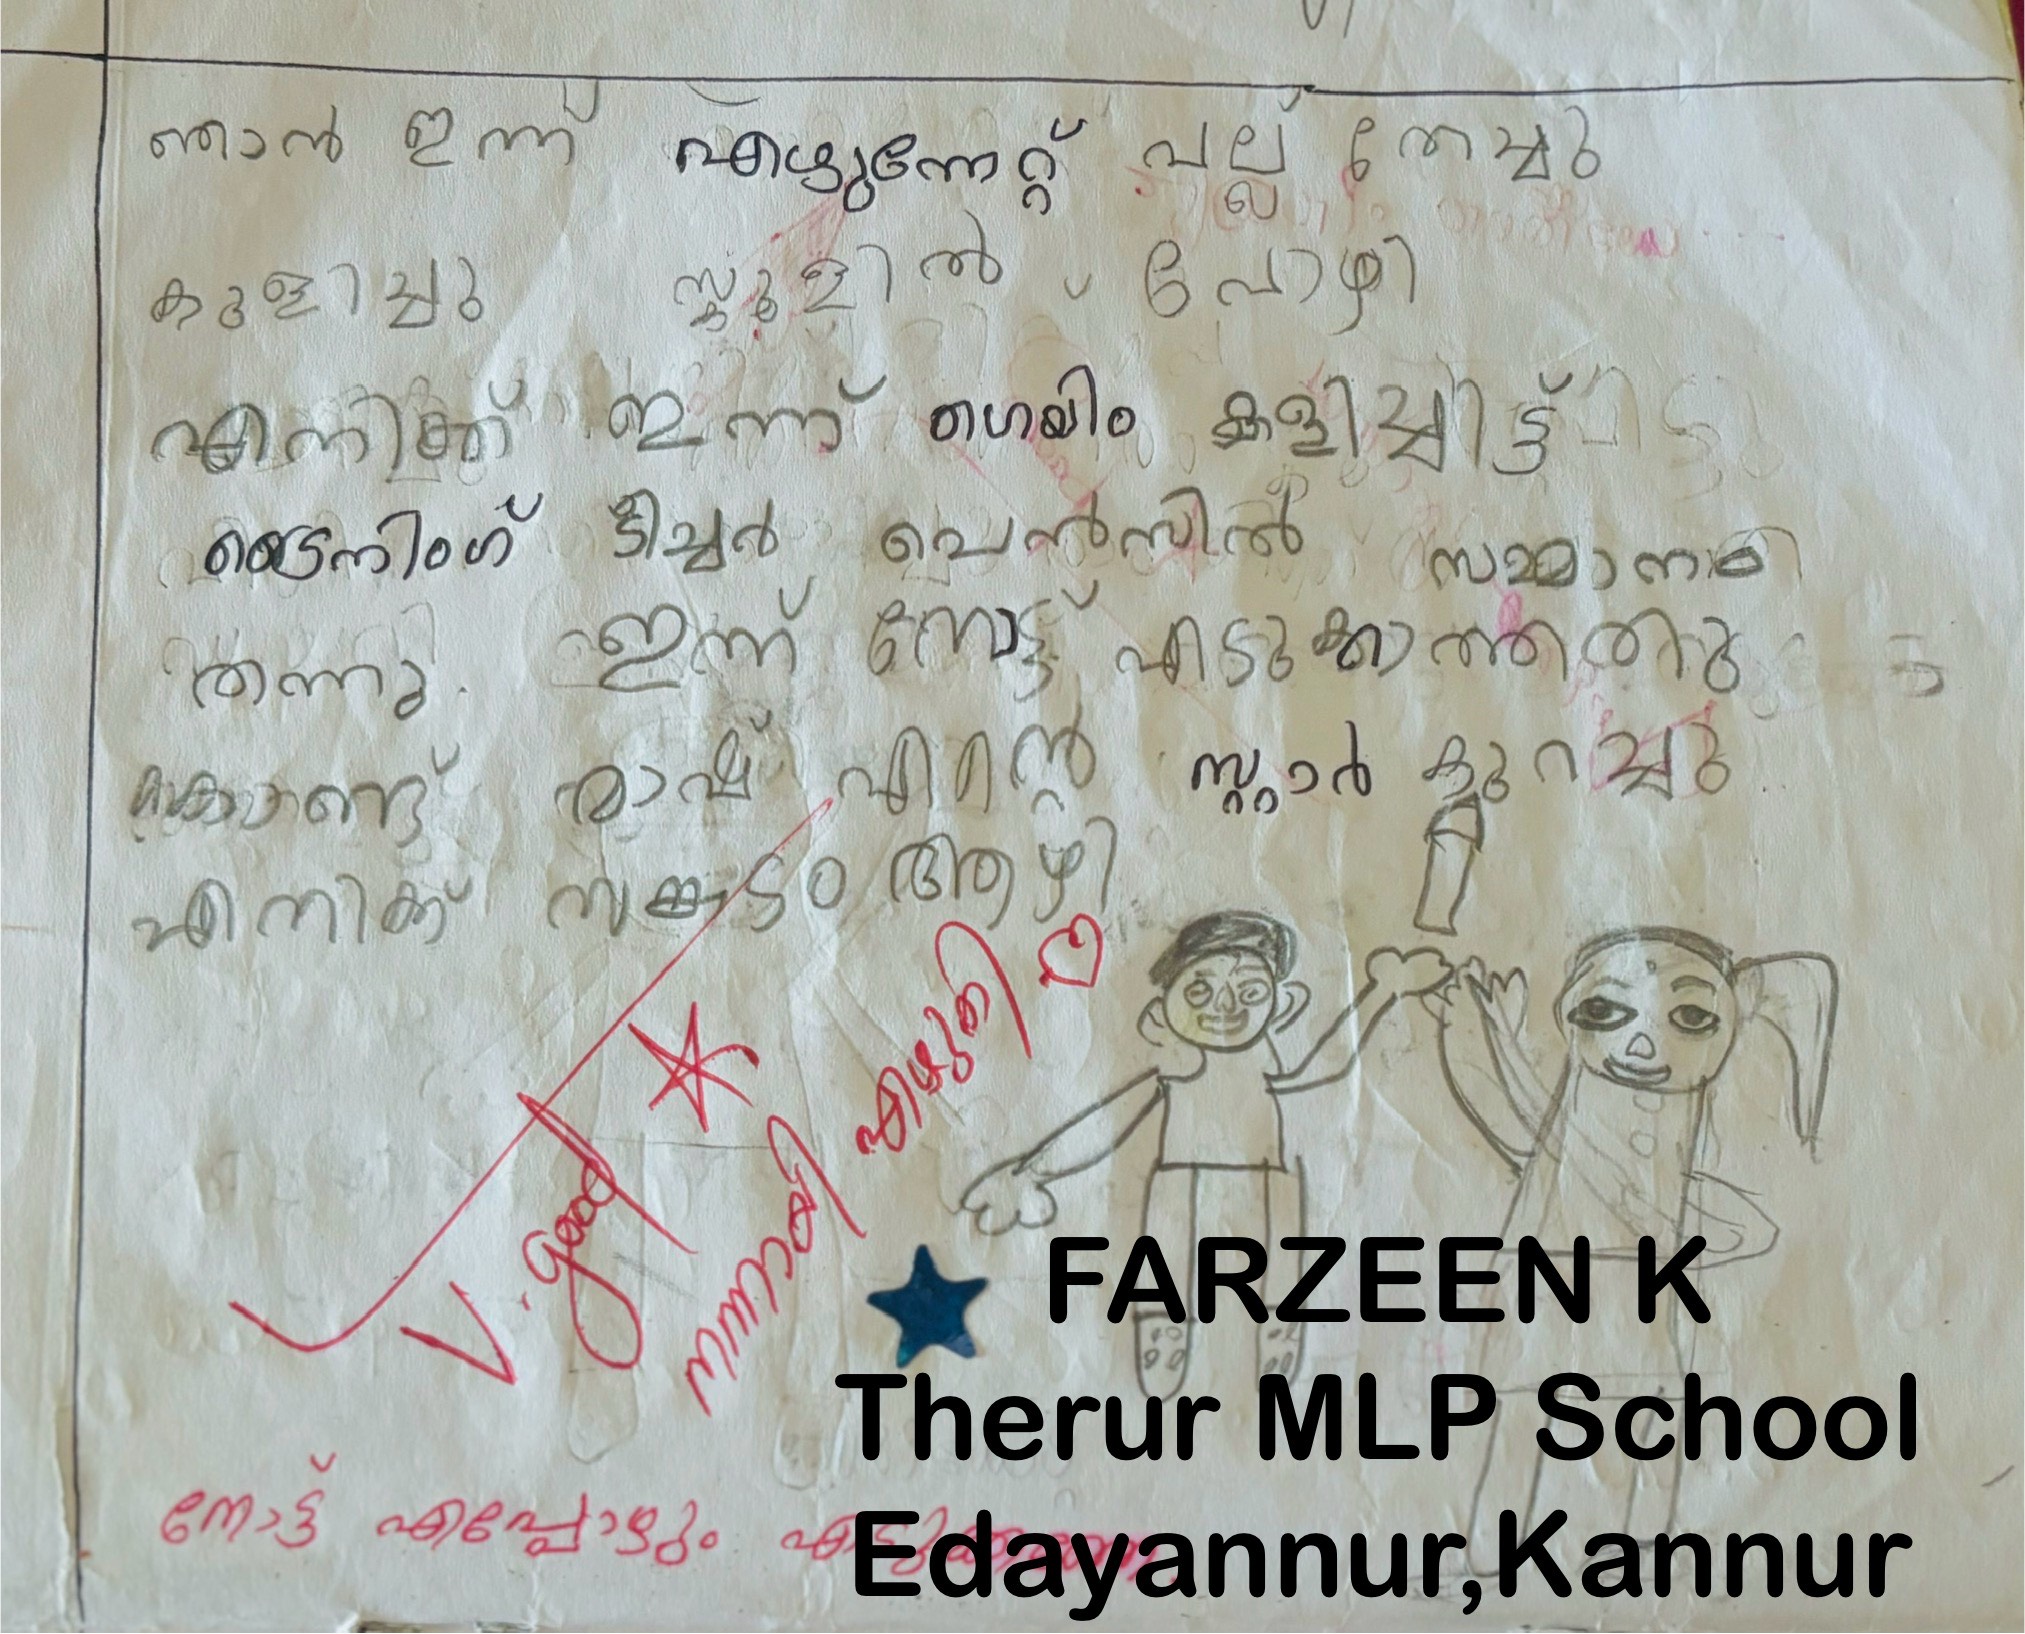 ഞാൻ ഇന്ന് എഴുന്നേറ്റ് പല്ല് തേച്ചു
കുളിച്ചു സ്കൂളിൽ പോഴി
എനിക്ക് ഇന്ന് ഗെയിം കളിച്ചിട്ട്
ട്രൈനിംഗ് ടീച്ചർ പെൻസിൽ സമ്മാനം
തന്നു. ഇന്ന് നോട്ട് എടുക്കാത്തതു
കൊണ്ട് മാഷ് എന്റെ സ്റ്റാർ കുറച്ചു
എനിക്ക് സങ്കടം ആഴി
V. good
നന്നായി എഴുതി
നോട്ട് എപ്പോഴും
FARZEEN K
Therur MLP School
Edayannur,Kannur